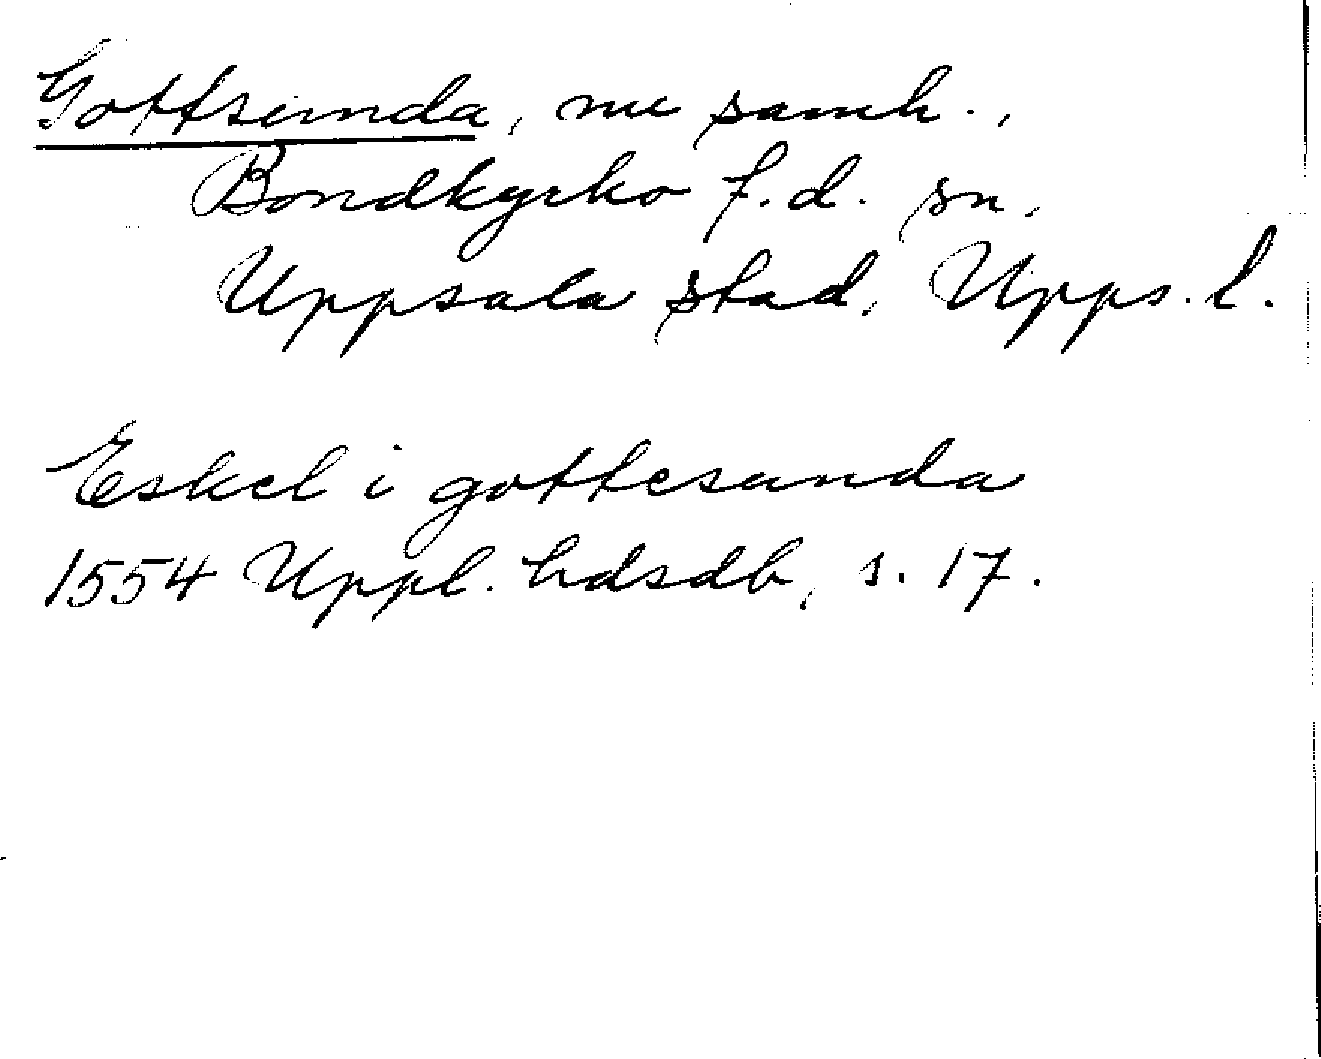 Gottsunda, nu samh.,
Bondkyrko f.d. sn,
Uppsala stad, Upps. l.
Eskel i gottesunda
1554 Uppl. hdsdb, s. 17.